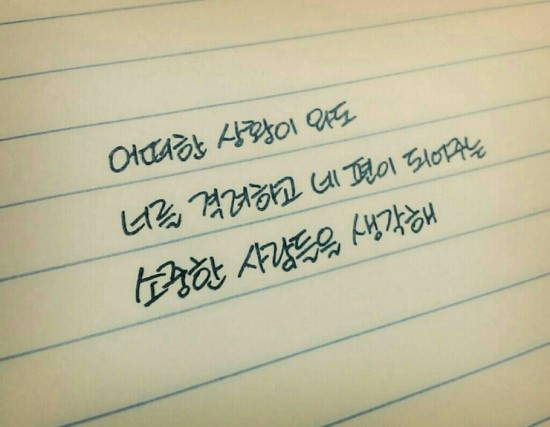 어떠한 상황이 와도
너를 격려하고 네 편이 되어주는
소중한 사람들을 생각해